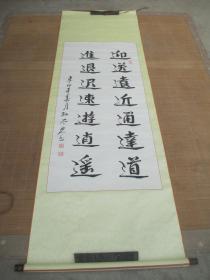 迎送遠近通達道
進退遲速遊逍遥